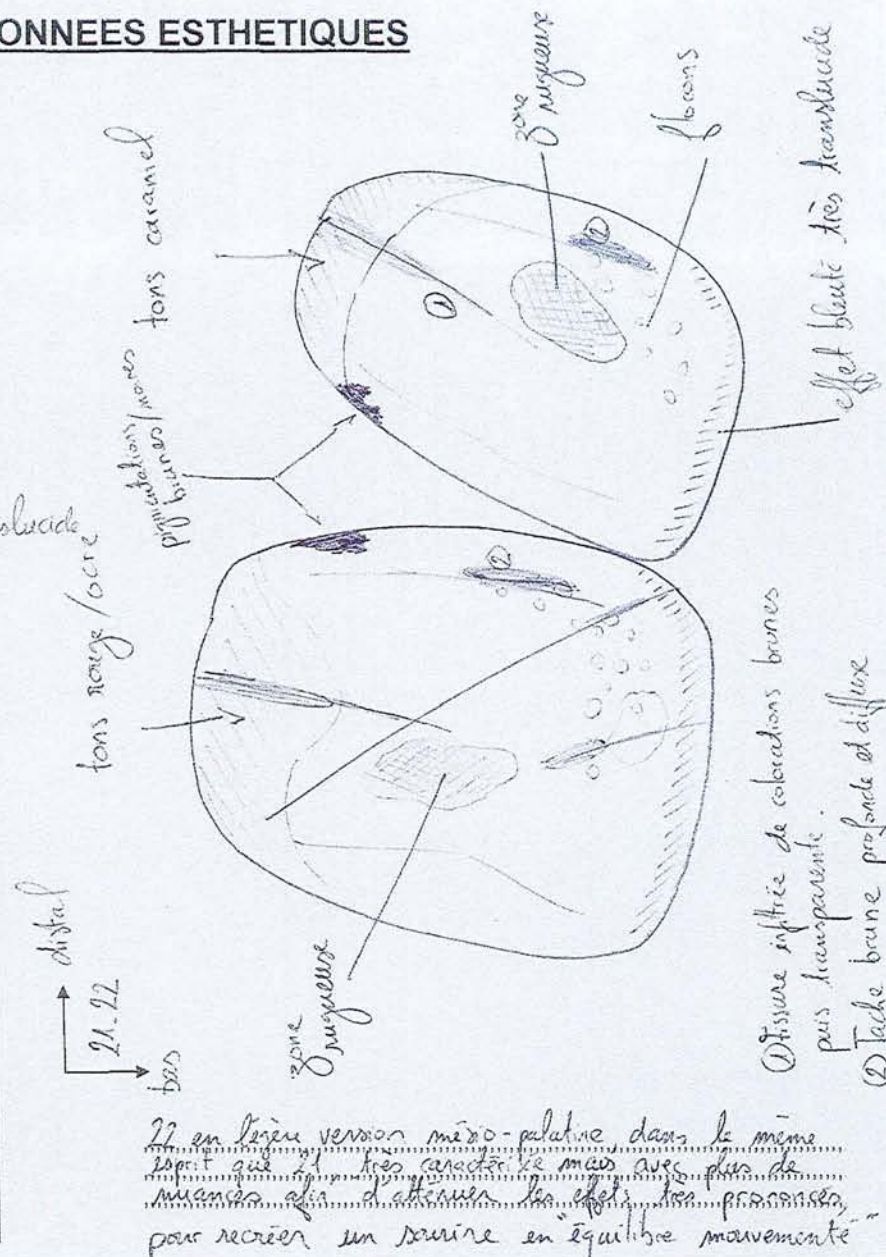 ONNEES ESTHETIQUES
slucide
tons rouge/ocre
pigmentations
brunes/noires
tons caramel
zone
rugueuse
flocons
effet bleuté très translucide
①
②
②
distal
21.22
bas
zone
rugueuse
① Fissure infiltrée de colorations brunes
puis transparente.
② Tache brune profonde et diffuse
22 en légère version mésio-palatine, dans le même
esprit que 21, très caractérisé mais avec plus de
nuances afin d'atténuer les effets très prononcés,
pour recréer un sourire en "équilibre mouvementé"